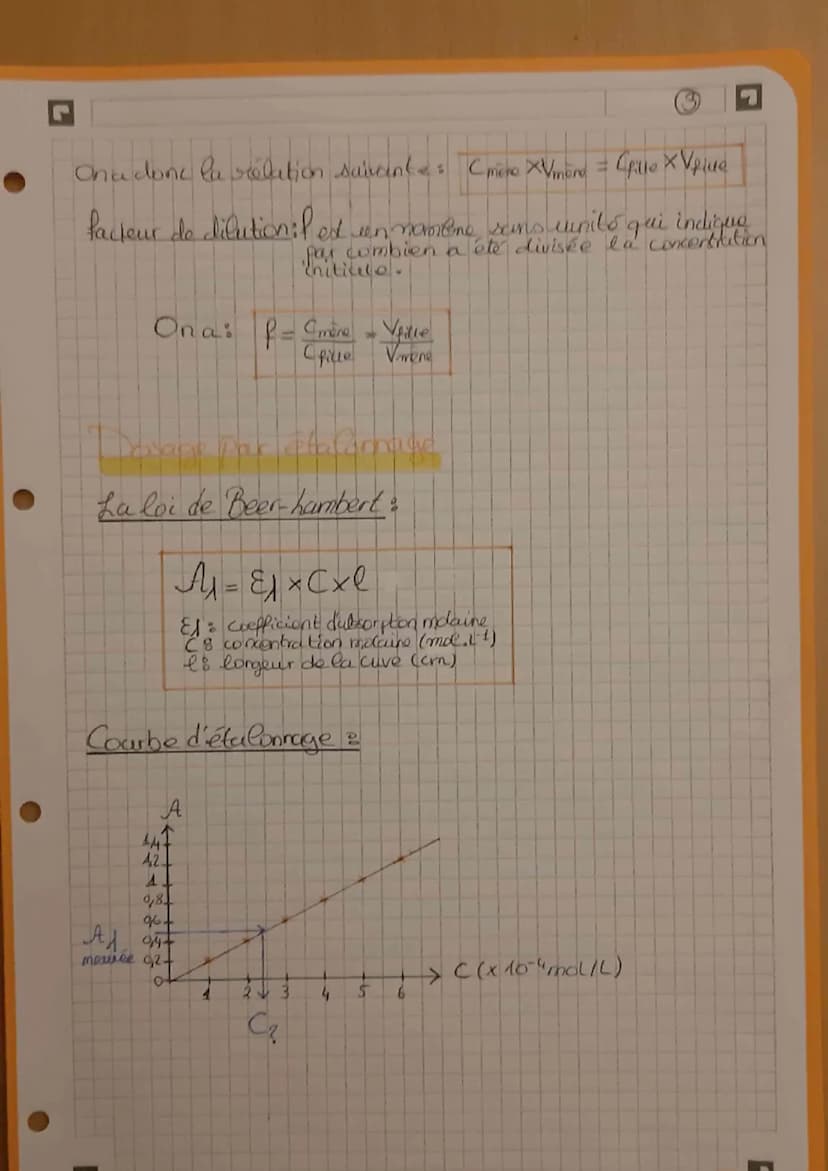 ③
On a donc la relation suivante : Cmère × Vmère = Cfille × Vfille
facteur de dilution : f est un nombre sans unité qui indique
par combien a été divisée la concentration
initiale.
On a : f = Cmère / Cfille = Vfille / Vmère
Dosage par étalonnage
La loi de Beer-Lambert :
Aλ = Ελ × C × l
Ελ : coefficient d'absorption molaire
C : concentration molaire (mol.L⁻¹)
l : longeur de la cuve (cm)
Courbe d'étalonnage :
A
1,4
1,2
1
0,8
0,6
Aλ 0,4
mesurée 0,2
0
1 2 3 4 5 6
C (× 10⁻⁴ mol/L)
C?